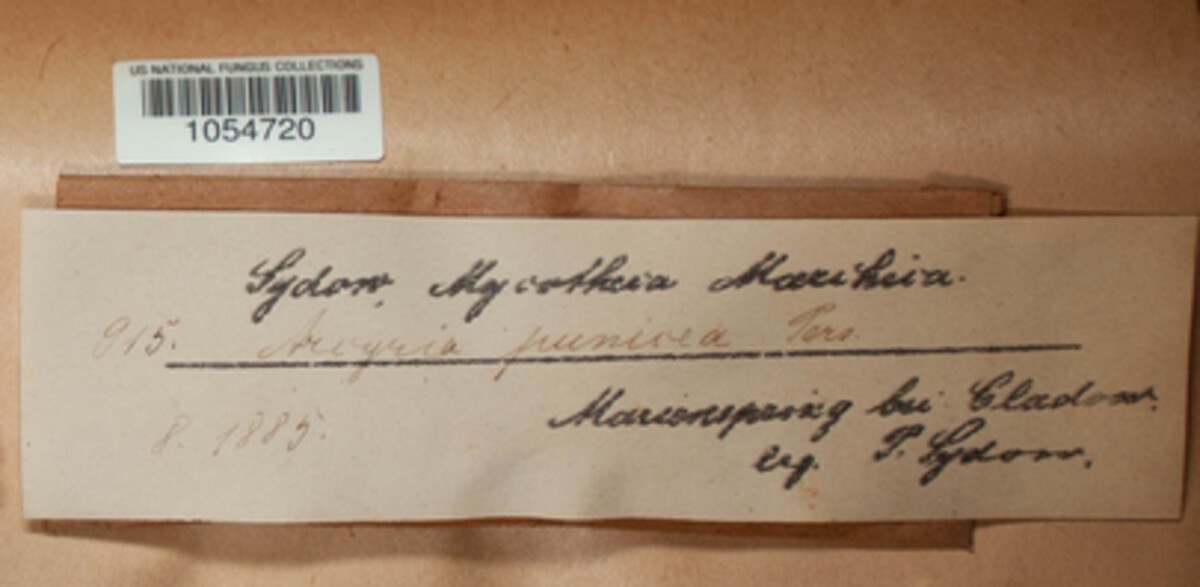 US NATIONAL FUNGUS COLLECTIONS
1054720
Sydow, Mycotheca Marchica.
915. Arcyria punicea Pers.
8. 1885.
Marienspring bei Cladow.
leg. P. Sydow.